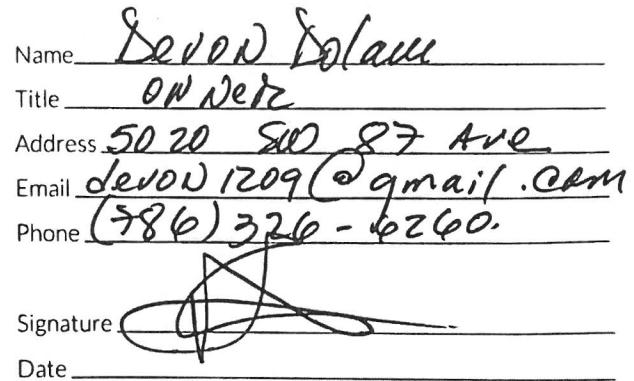 Name Devon Dolam
Title ONNeR
Address 5020 SW 87 Ave
Email devon1209@gmail.com
Phone (786) 326-6260.
Signature
Date